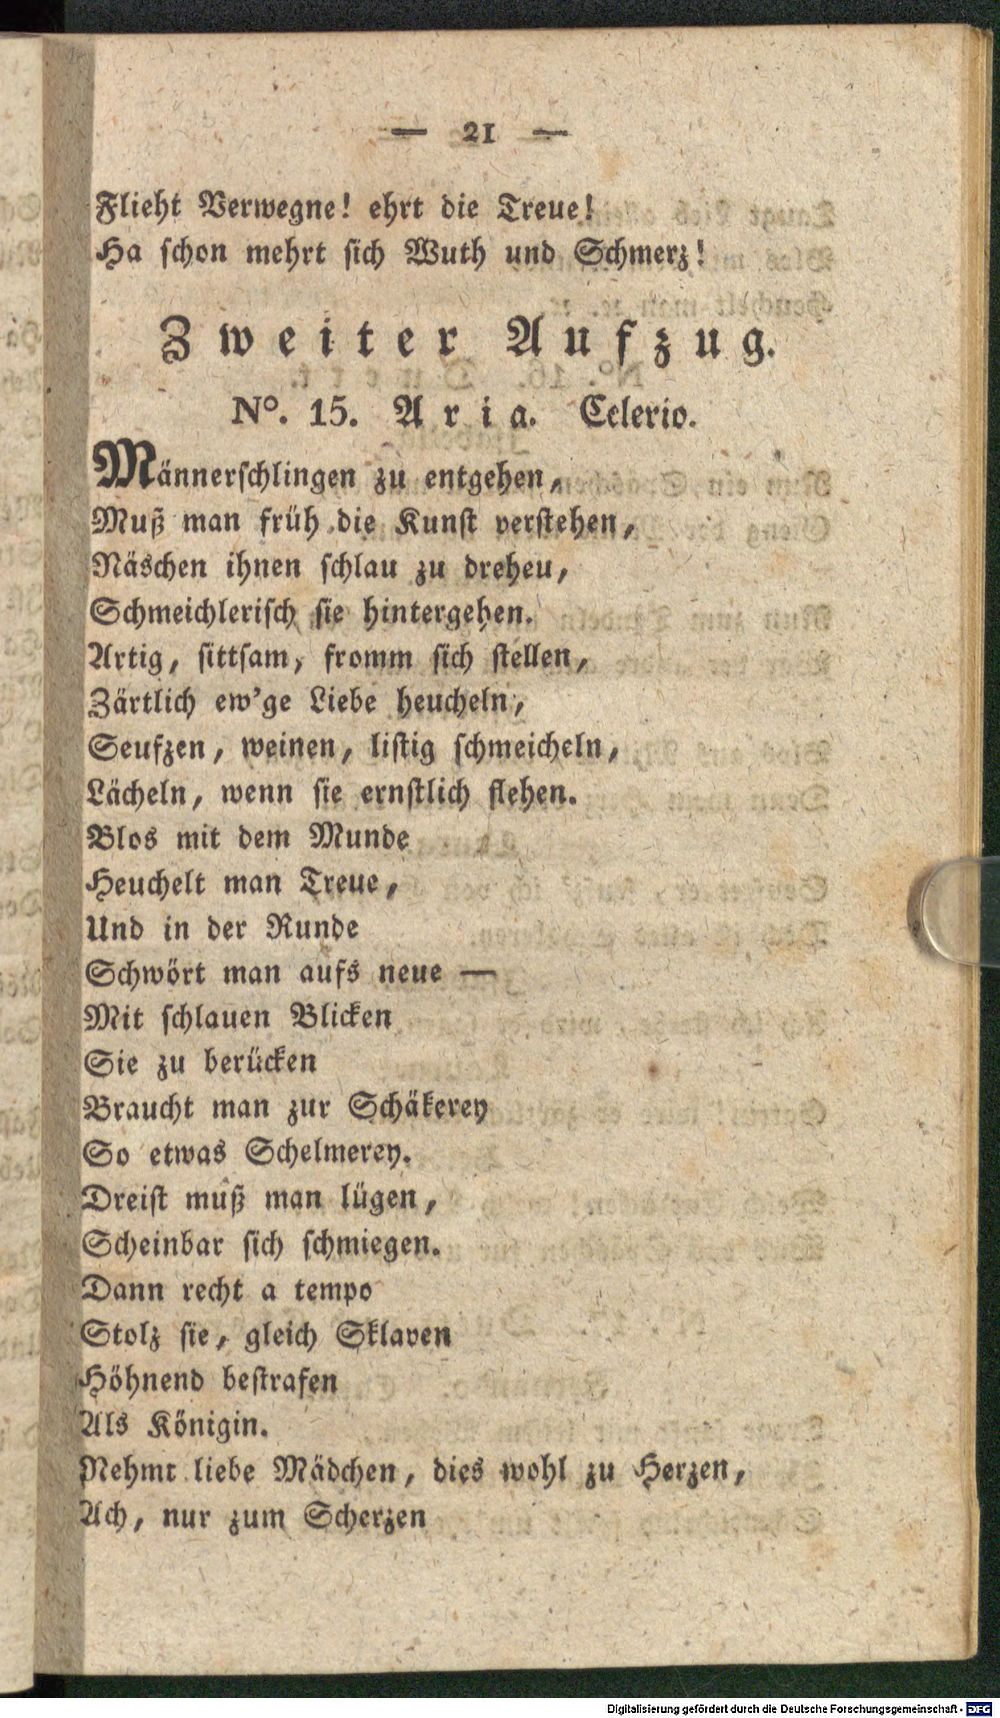 — 21 —
Flieht Verwegne! ehrt die Treue!
Ha schon mehrt sich Wuth und Schmerz!
Zweiter Aufzug.
Nº. 15. Aria. Celerio.
Männerschlingen zu entgehen,
Muß man früh die Kunst verstehen,
Näschen ihnen schlau zu dreheu,
Schmeichlerisch sie hintergehen.
Artig, sittsam, fromm sich stellen,
Zärtlich ew'ge Liebe heucheln,
Seufzen, weinen, listig schmeicheln,
Lächeln, wenn sie ernstlich flehen.
Blos mit dem Munde
Heuchelt man Treue,
Und in der Runde
Schwört man aufs neue —
Mit schlauen Blicken
Sie zu berücken
Braucht man zur Schäkerey
So etwas Schelmerey.
Dreist muß man lügen,
Scheinbar sich schmiegen.
Dann recht a tempo
Stolz sie, gleich Sklaven
Höhnend bestrafen
Als Königin.
Nehmt liebe Mädchen, dies wohl zu Herzen,
Ach, nur zum Scherzen
Digitalisierung gefördert durch die Deutsche Forschungsgemeinschaft - DFG